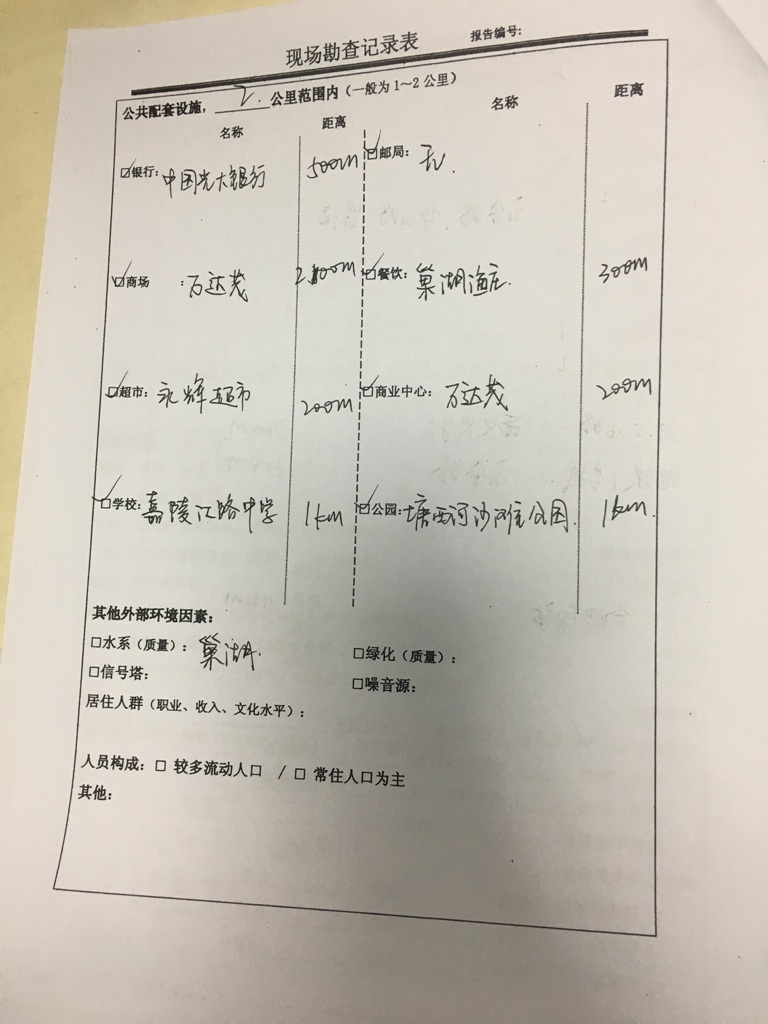 现场勘查记录表
报告编号:
公共配套设施，2.公里范围内（一般为1～2公里）
名称 距离 名称 距离
☑银行：中国光大银行 500m ☑邮局：无.
☑商场：万达茂 ☑餐饮：巢湖渔庄. 300m
☑超市：永辉超市 200m ☑商业中心：万达茂 200m
☑学校：嘉陵江路中学 1km ☑公园：塘西河沙滩公园. 1km.
其他外部环境因素：
□水系（质量）：巢湖. □绿化（质量）：
□信号塔： □噪音源：
居住人群（职业、收入、文化水平）：
人员构成：□ 较多流动人口 / □ 常住人口为主
其他：